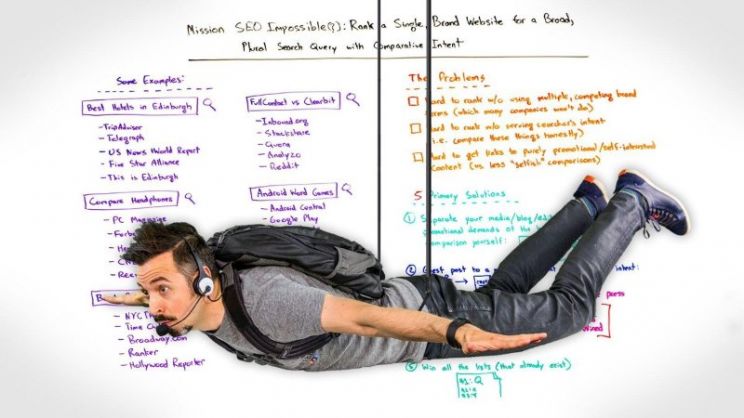 Mission SEO Impossible(?): Rank a Single, Brand Website for a Broad,
Plural Search Query with Comparative Intent
Some Examples:
Best Hotels in Edinburgh
- TripAdvisor
- Telegraph
- US News & World Report
- Five Star Alliance
- This is Edinburgh
Compare Headphones
- PC Magazine
NYC
- Time
- Broadway.com
- Ranker
- Hollywood Reporter
FullContact vs Clearbit
- Inbound.org
- Stackshare
- Quora
- Analyzo
- Reddit
Android Word Games
- Android Central
- Google Play
The Problems
Hard to rank w/o using multiple, competing brand
terms (which many companies won't do)
Hard to rank w/o serving searcher's intent
i.e. compare these things honestly)
Hard to get links to purely promotional/self-interested
content (vs less "selfish" comparisons)
5 Primary Solutions
① Separate your media/blog/
demands of the
comparison yourself:
② Guest post to a
intent:
press
⑤ Win all the lists (that already exist)
#1: Q